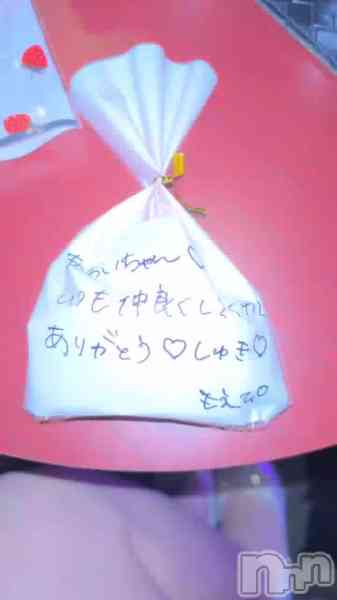 ちゃん♡
いつも仲良くしてくれ
ありがとう♡しゅき♡
もえ